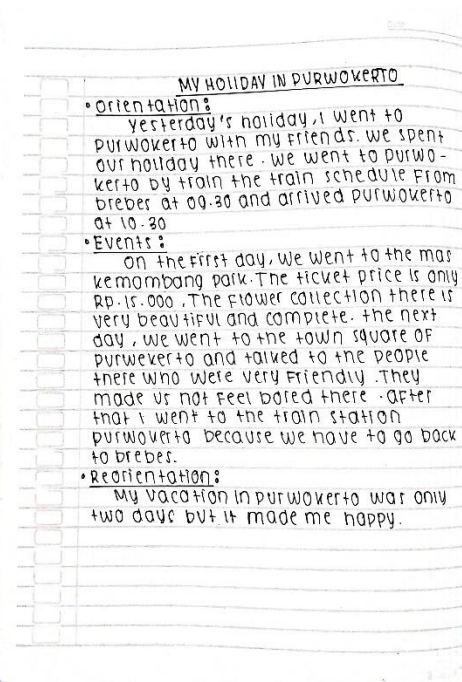 MY HOLIDAY IN PURWOKERTO
• Orientation:
Yesterday's holiday, I went to
Purwokerto with my friends. We spent
our holiday there. We went to Purwo-
kerto by train the train schedule from
brebes at 09.30 and arrived Purwokerto
at 10.30
• Events:
On the first day, we went to the mas
kemambang park. The ticket price is only
Rp. 15.000, The flower collection there is
very beautiful and complete. the next
day, we went to the town square of
purwekerto and talked to the people
there who were very friendly. They
made us not feel bored there. after
that I went to the train station
purwokerto because we have to go back
to brebes.
• Reorientation:
My vacation in purwokerto was only
two days but it made me happy.